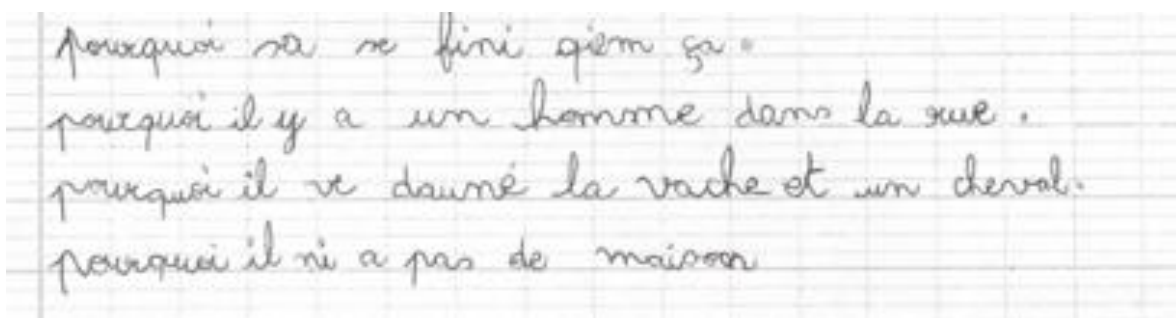 pourquoi sa se fini qièm ça.
pourquoi il y a un homme dans la rue.
pourquoi il ve dauné la vache et un cheval.
pourquoi il ni a pas de maison